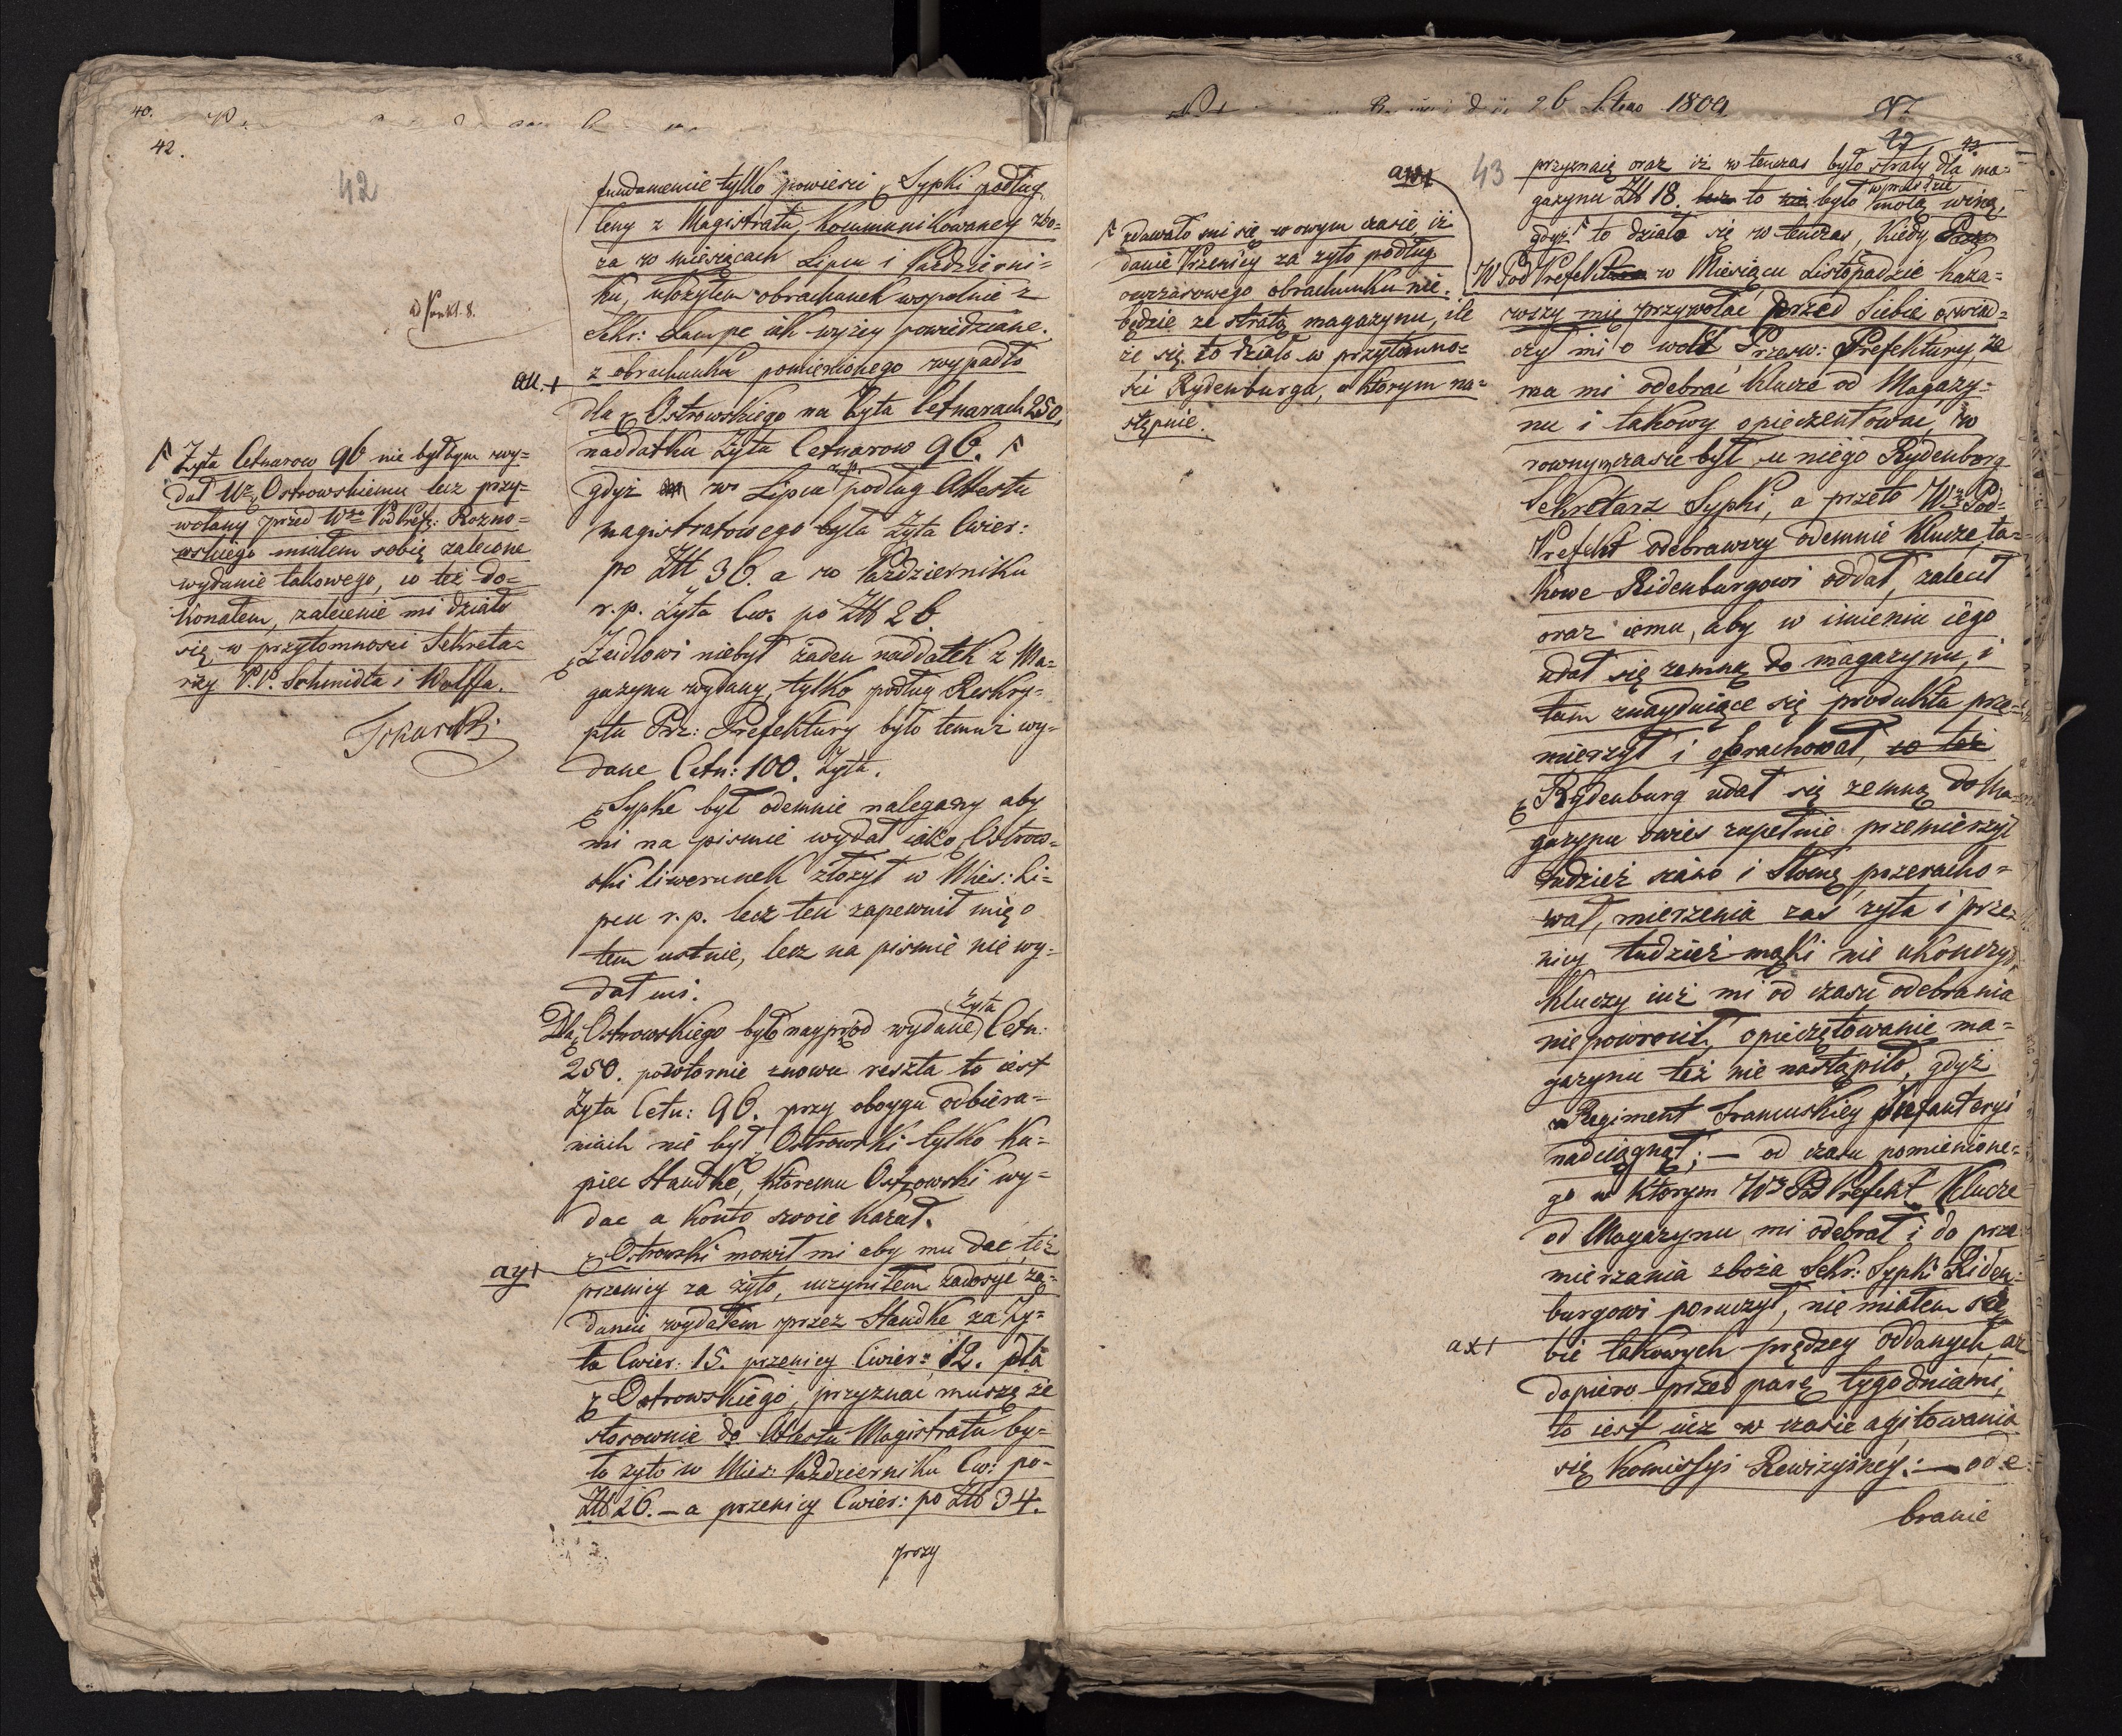 40.
42.
42
fundamencie tylko powieści Sypki podług
Ceny z Magistratu kommunikowaney zbo=
ża w miesiącach Lipcu i Październi=
ku, ułożyłem obrachunek wspolnie z
Sekr: Lampe iak wyżey powiedziane.
z obrachunku pomienionego wypadło
dla Ostrowskiego na Żyta Cetnarach 250,
naddatku Żyta Cetnarow 96.
gdyż w Lipcu r. p. podług Attestu
magistratowego była Żyta Cwier:
po Złł 36. a w Październiku
r. p. Żyta Cw. po Złł 26.
Zeidlowi niebył żaden naddatek z Ma=
gazynu wydany, tylko podług Reskry=
ptu Prz: Prefektury było temuż wy=
dane Cetn: 100. Żyta.
Sypke był odemnie nalegany aby
mi na pismie wydał iako Ostrow=
ski liwerunek złożył w Mies: Li=
pcu r. p. lecz ten zapewnił mię o
tem ustnie, lecz na pismie nie wy=
dał mi.
Dla Ostrowskiego było nayprzod wydane Żyta Cetn:
250. powtornie znowu reszta to iest
Żyta Cetn: 96. przy oboygu odbiera=
niach nie był Ostrowski tylko Ku=
piec Staudke, ktoremu Ostrowski wy=
dac a Konto swoie kazał.
Ostrowski mowił mi aby mu dac też
przenicy za żyto, uczyniłem zadosyc żą=
daniu wydałem przez Staudke za Ży=
ta Cwier: 15. przenicy Cwier: 12. dla
Ostrowskiego, przyznac muszę że
stosownie do Attestu Magistratu by=
ło żyto w Mies: Październiku Cw: po
Złł 26. – a przenicy Cwier: po Złł 34.
przy
ad Punkt. 8.
au.+
Żyta Cetnarow 96 nie byłbym wy=
dał Wu Ostrowskiemu lecz przy=
wołany przed Wgo PodPref: Rozno=
wskiego miałem sobie zalecone
wydanie takowego, co też do=
konałem, zalecenie mi działo
się w przytomnosci Sekreta=
rzy P.P. Schmidta i Wolffa.
Tokarski
ay+
26 1809
43
aw+
43
przyznaię oraz iż w tenczas było straty dla ma=
gazynu Złł 18. to było wprawdzie moią winą,
gdyż to działo się w tenczas, kiedy
W PodPrefekt w Miesiącu Listopadzie kaza=
wszy mię przywołać przed Siebie oswiad=
czył mi o woli Przesw: Prefektury że
ma mi odebrać klucze od Magazy=
nu i takowy opieczentować, w
rownym czasie był u niego Rydenburg
Sekretarz Sypki, a przeto Wny Pod=
Prefekt odebrawszy odemnie klucze ta=
kowe Ridenburgowi oddał, zalecił
oraz iemu, aby w imieniu iego
udał się zemną do magazynu, i
tam znayduiące się produkta prze=
mierzył i obrachował, co też
Rydenburg udał się zemną do Ma=
gazynu owies zupełnie przemierzył
tudzież siano i słomę przeracho=
wał, mierzenia zas żyta i prze=
nicy tudzież mąki nie ukonczył,
kluczy iuż mi od czasu odebrania
nie powrocił, opieczętowanie ma=
gazynu też nie nastąpiło, gdyż
Regiment Francuskiey Jnfanteryi
nadciągnął; – od czasu pomienione=
go w ktorym Wny PodPrefekt Klucze
od Magazynu mi odebrał i do prze
mierzania zboża Sekr: Sypki Riden=
burgowi poruczył, nie miałem so=
bie takowych prędzey oddanych, aż
dopiero przed parę tygodniami,
to iest iuż w czasie agitowania
się Kommissyi Rewizyiney: – ode
branie
zdawało mi się w owym czasie, iż
danie Przenicy za żyto podług
owczasowego obrachunku nie
będzie ze stratą magazynu, ile
że się to działo w przytomno=
sci Rydenburga, o ktorym na=
stępnie.
ax+